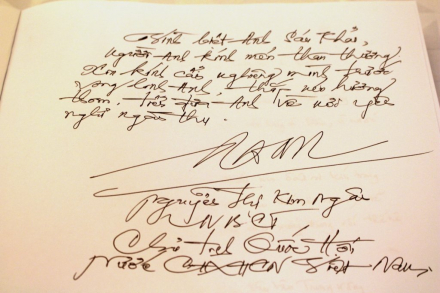 Vĩnh biệt Anh Sáu Khải,
Người Anh kính mến thân thương
Xin kính cẩn nghiêng mình trước
vong linh Anh, thắp nén hương
thơm. Tiễn đưa Anh về nơi yên
nghỉ ngàn thu.
Nguyễn Thị Kim Ngân
UVBCT
Chủ tịch Quốc Hội
Nước CHXHCN Việt Nam